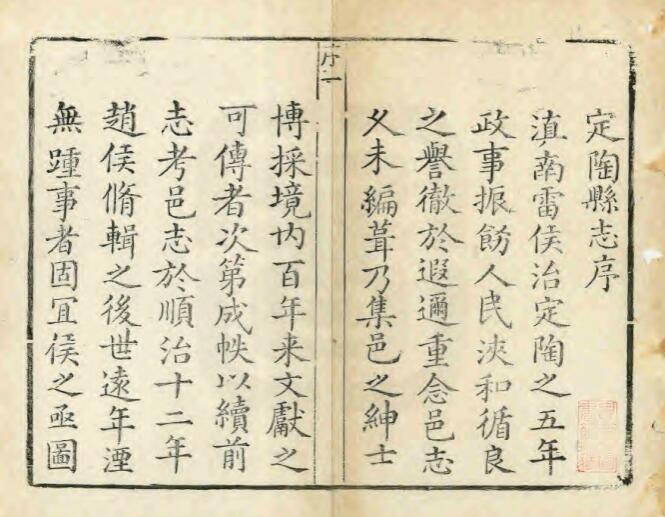 定陶縣志序
滇南雷侯治定陶之五年
政事振飭人民浹和循良
之譽徹於遐邇重念邑志
久未編葺乃集邑之紳士
序一
博採境内百年来文獻之
可傳者次第成帙以續前
志考邑志於順治十二年
趙侯脩輯之後世遠年湮
無踵事者固冝侯之亟圖